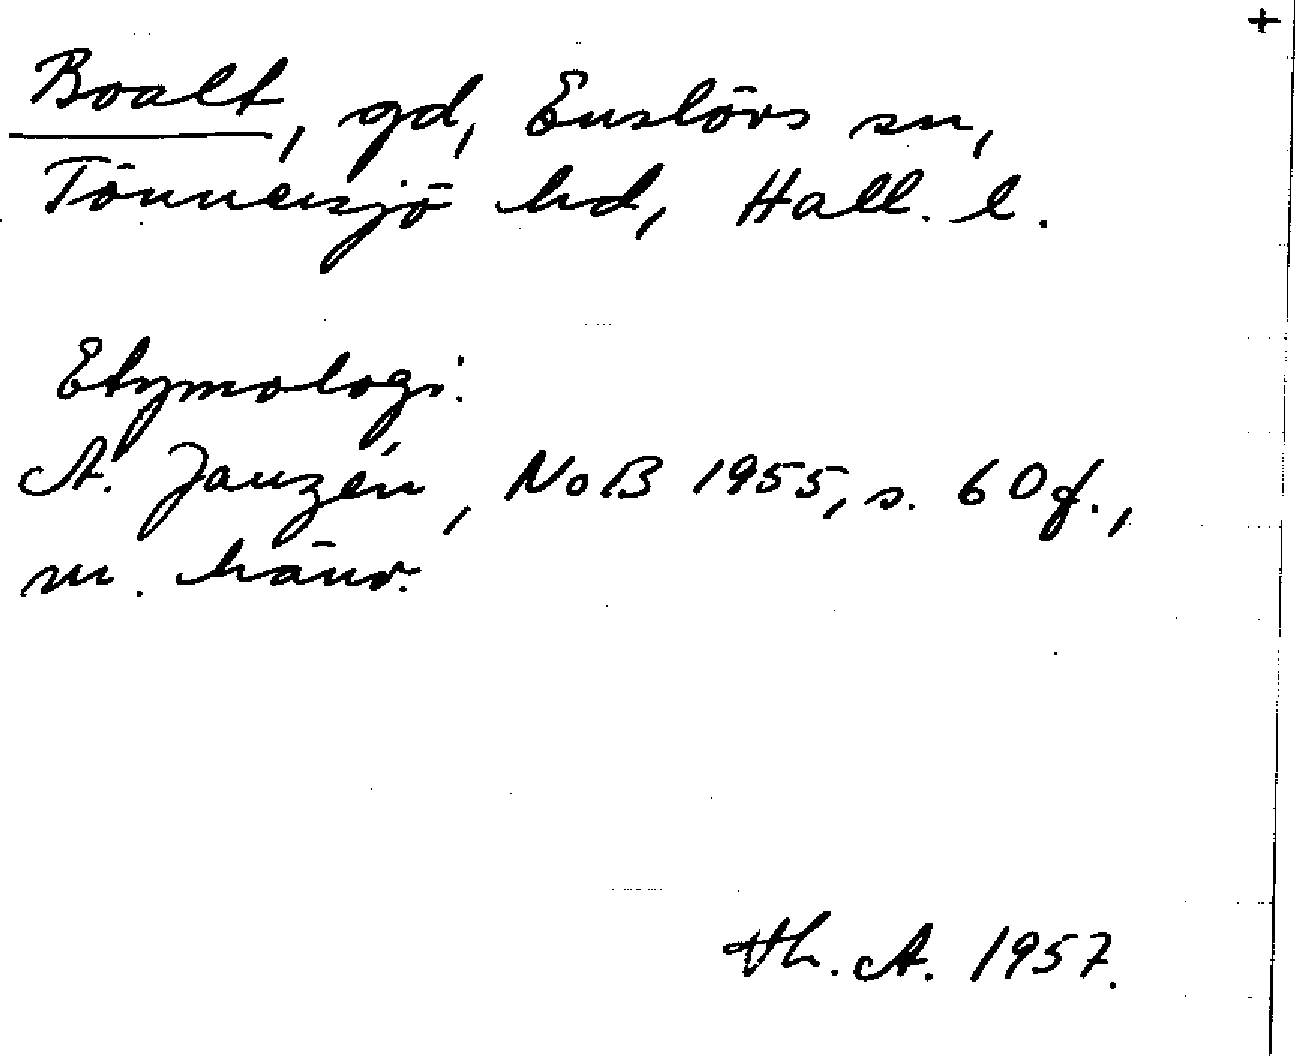 +
Boalt, gd, Enslövs sn,
Tönnersjö hd, Hall. l.
Etymologi:
A. Janzén, NoB 1955, s. 60 f.,
m. hänv.
Th. A. 1957.